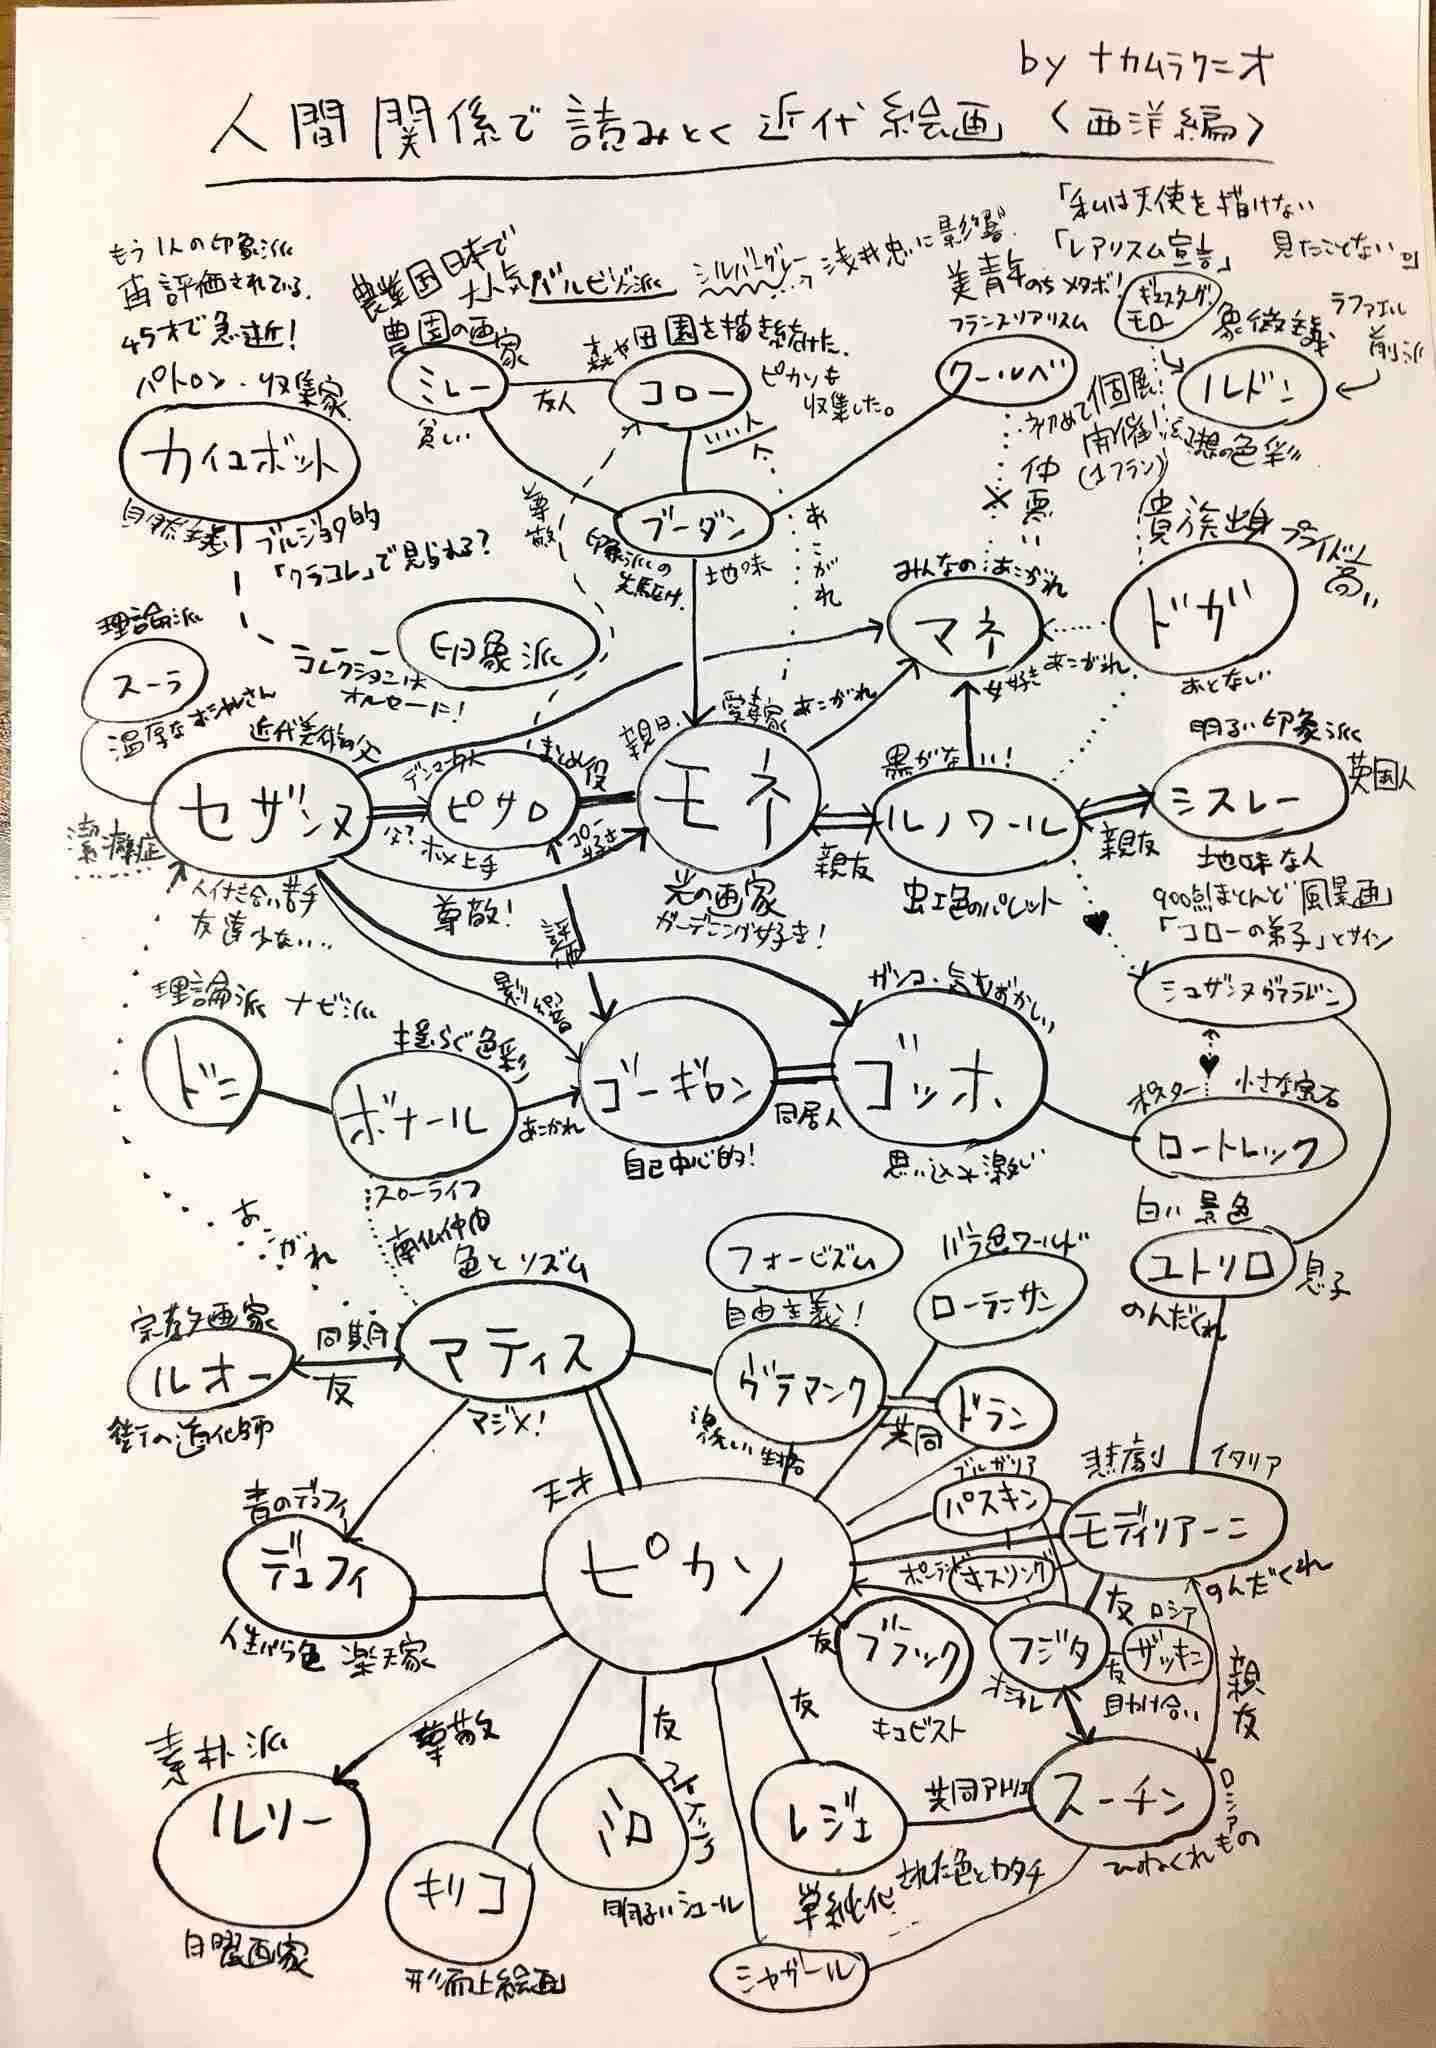 by ナカムラクニオ
人間関係で読みとく近代絵画〈西洋編〉
「私は天使を描けない
見たことない
「レアリスム宣言」
もう1人の印象派
再評価されている。
45才で急逝！
パトロン・収集家
カイユボット
自然主義
ブルジョワ的
「クラコレ」で見られる？
コレクションは
オルセーに！
農業国日本で
大人気バルビゾン派
シルバーグレー
浅井忠に影響
農園の画家
ミレー
貧しい
友人
森や田園を描き続けた。
コロー
ピカソも
収集した。
いい人
美青年のちメタボ！
フランスリアリスム
クールベ
初めて個展
開催！
(1フラン)
仲悪い
ギュスターヴ
モロー
象徴主義
ラファエル
前派
ルドン
幻想の色彩
ブーダン
地味
印象派の
先駆け
尊敬
あこがれ
印象派
みんなのあこがれ
マネ
女好き
貴族出身
プライド高い
ドガ
おとない
あこがれ
理論派
スーラ
温厚なオシャレさん
近代美術の父
セザンヌ
潔癖症
人付き合い苦手
友達少ない‥
父？
デンマーク人
まとめ役
ピサロ
ホメ上手
尊敬！
コロー
好き
親日
愛妻家
あこがれ
モネ
光の画家
ガーデニング好き！
親友
黒がない！
ルノワール
虹色のパレット
親友
明るい印象派
英国人
シスレー
地味な人
900点ほとんど「風景画」
「コローの弟子」とサイン
評価
影響
理論派 ナビ派
ドニ
揺らぐ色彩
ボナール
スローライフ
あこがれ
ゴーギャン
自己中心的！
同居人
ガンコ・気むずかしい
ゴッホ
思い込み激しい
シュザンヌヴァラドン
ポスター
小さな宝石
ロートレック
白い景色
ユトリロ
息子
のんだくれ
あこがれ
南仏仲間
色とリズム
マティス
マジメ！
宗教画家
ルオー
街の道化師
同期
友
フォービズム
自由主義！
ヴラマンク
激しい生活
バラ色ワールド
ローランサン
共同
ドラン
青のデュフィ
デュフィ
人生バラ色 楽天家
天才
ピカソ
ブルガリア
パスキン
ポーランド
キスリング
悲劇
イタリア
モディリアーニ
のんだくれ
友
ブラック
キュビスト
フジタ
オシャレ
友
ロシア
ザッキン
友
助け合い
親友
素朴派
ルソー
日曜画家
尊敬
キリコ
形而上絵画
友
ミロ
スペイン
明るいシュール
友
レジェ
単純化された色とカタチ
共同アトリエ
スーチン
ロシア
ひねくれもの
シャガール